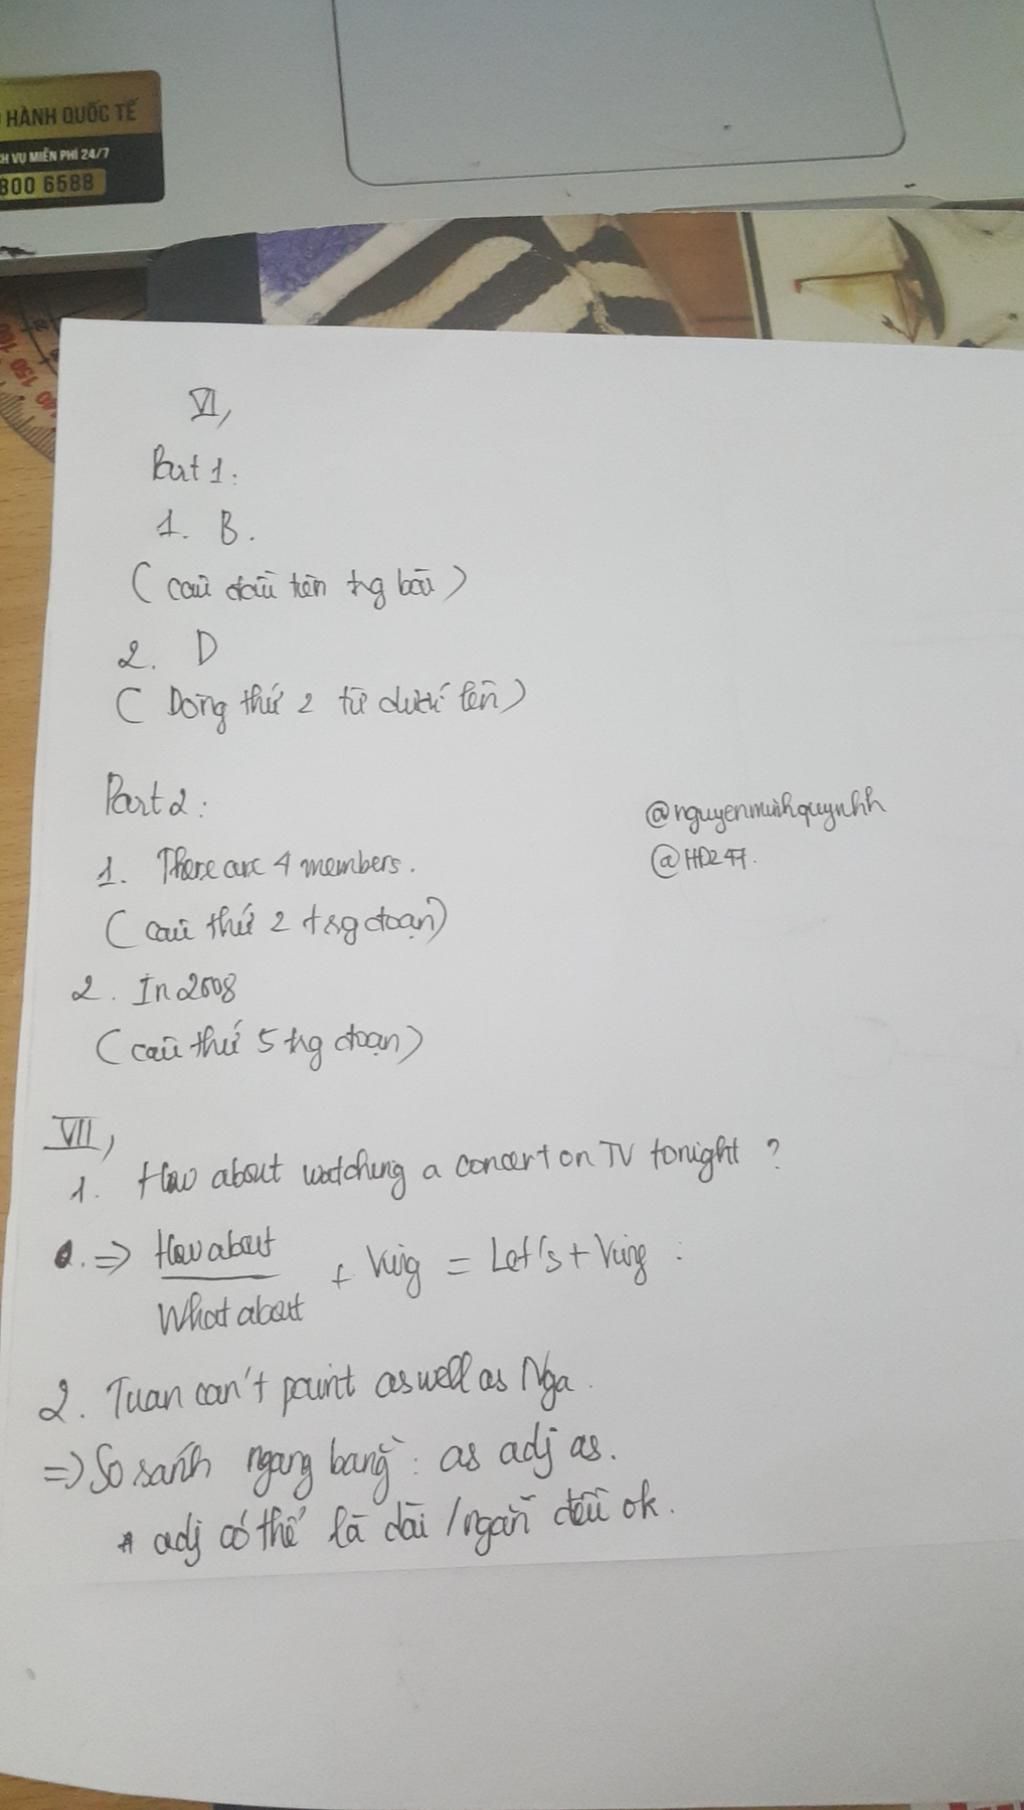 HÀNH QUỐC TẾ
VỤ MIỄN PHÍ 24/7
800 6588
VI,
Part 1:
1. B.
(câu đầu tiên trg bài)
2. D
(Dòng thứ 2 từ dưới lên)
Part 2:
@nguyenminhquynhh
@HD247.
1. There are 4 members.
(câu thứ 2 trg đoạn)
2. In 2008
(câu thứ 5 trg đoạn)
VII,
1. How about watching a concert on TV tonight ?
=> How about
What about
+ Ving = Let's + Ving :
2. Tuan can't paint as well as Nga.
=> So sánh ngang bằng : as adj as.
* adj có thể là dài / ngắn đều ok.